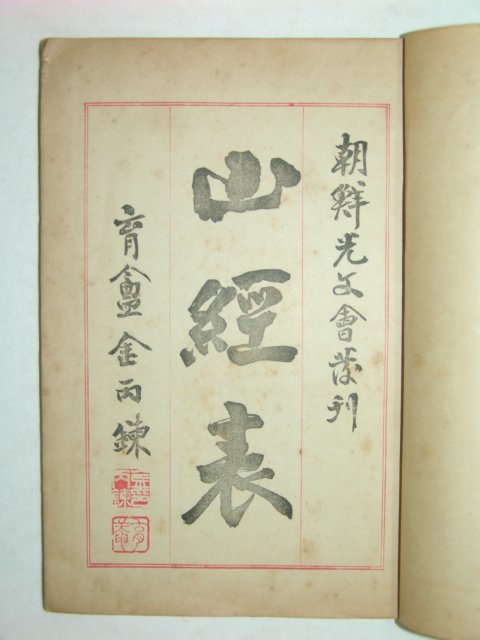 朝鮮光文會發刊
山經表
育盦金丙鍊